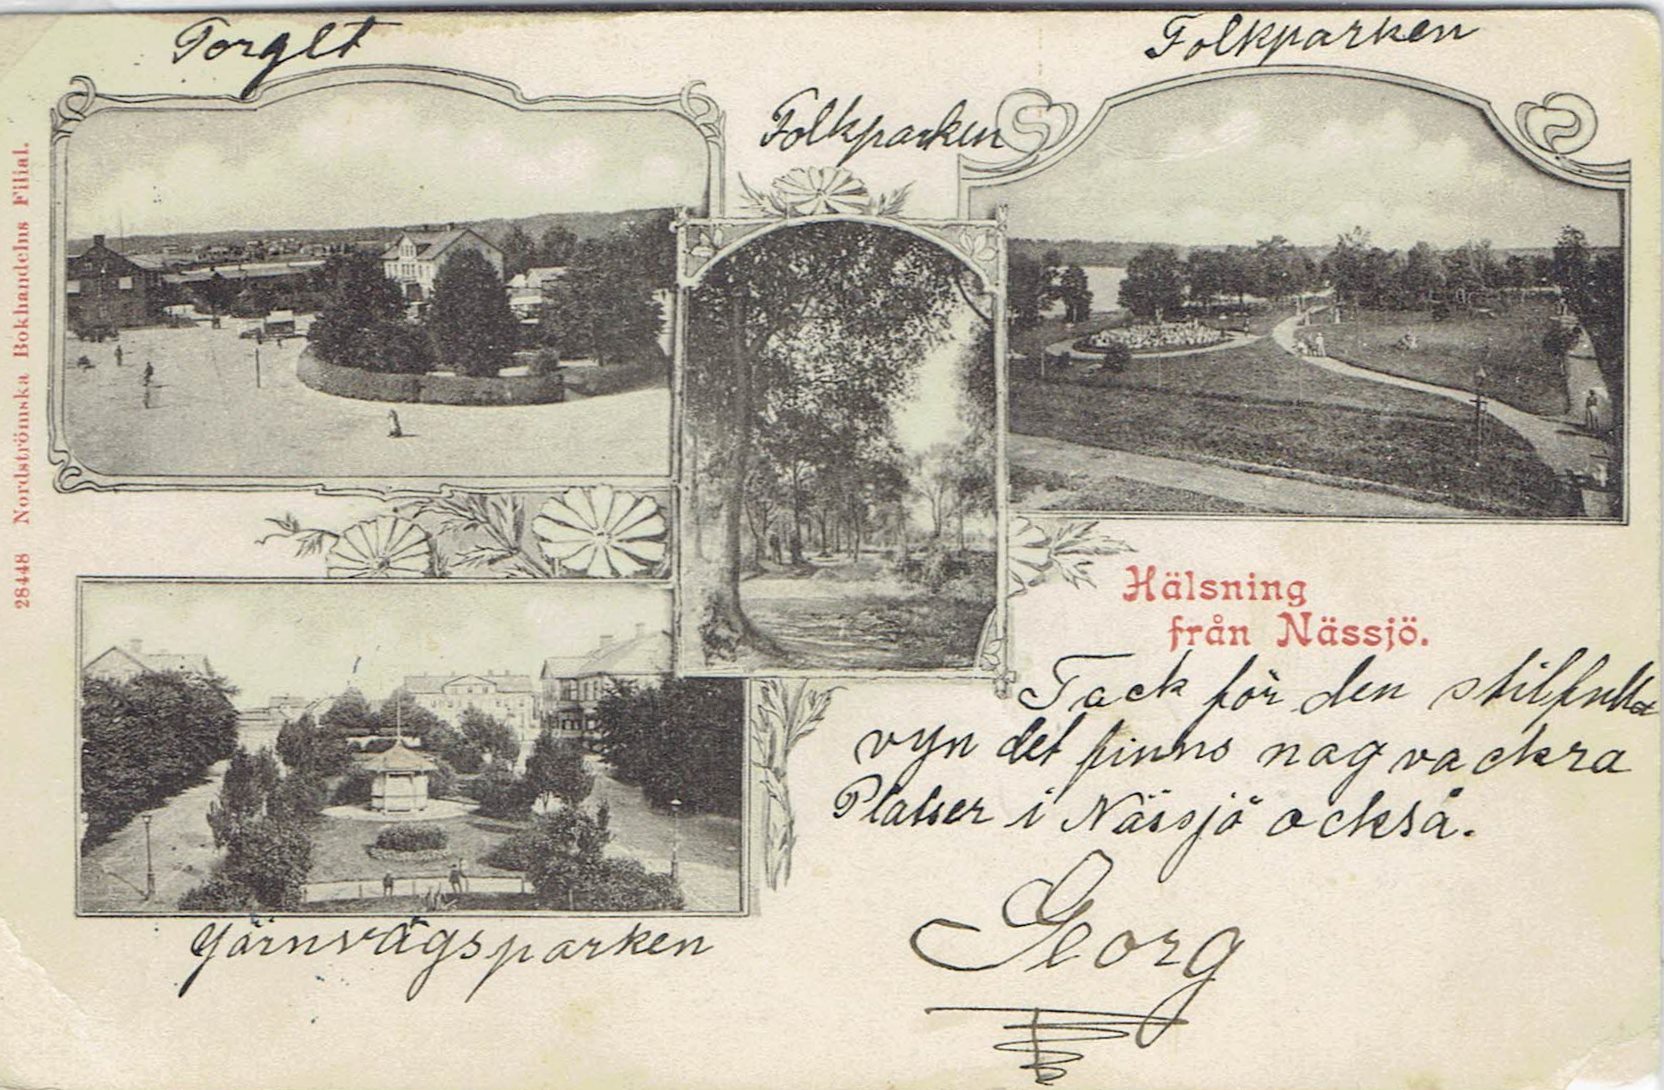 Torglt
Folkparken
Folkparken
28448 Nordströmska Bokhandelns Filial.
Hälsning
från Nässjö.
Tack för den stilfulla
vyn det finns nag vackra
Platser i Nässjö också.
Georg
Järnvägsparken